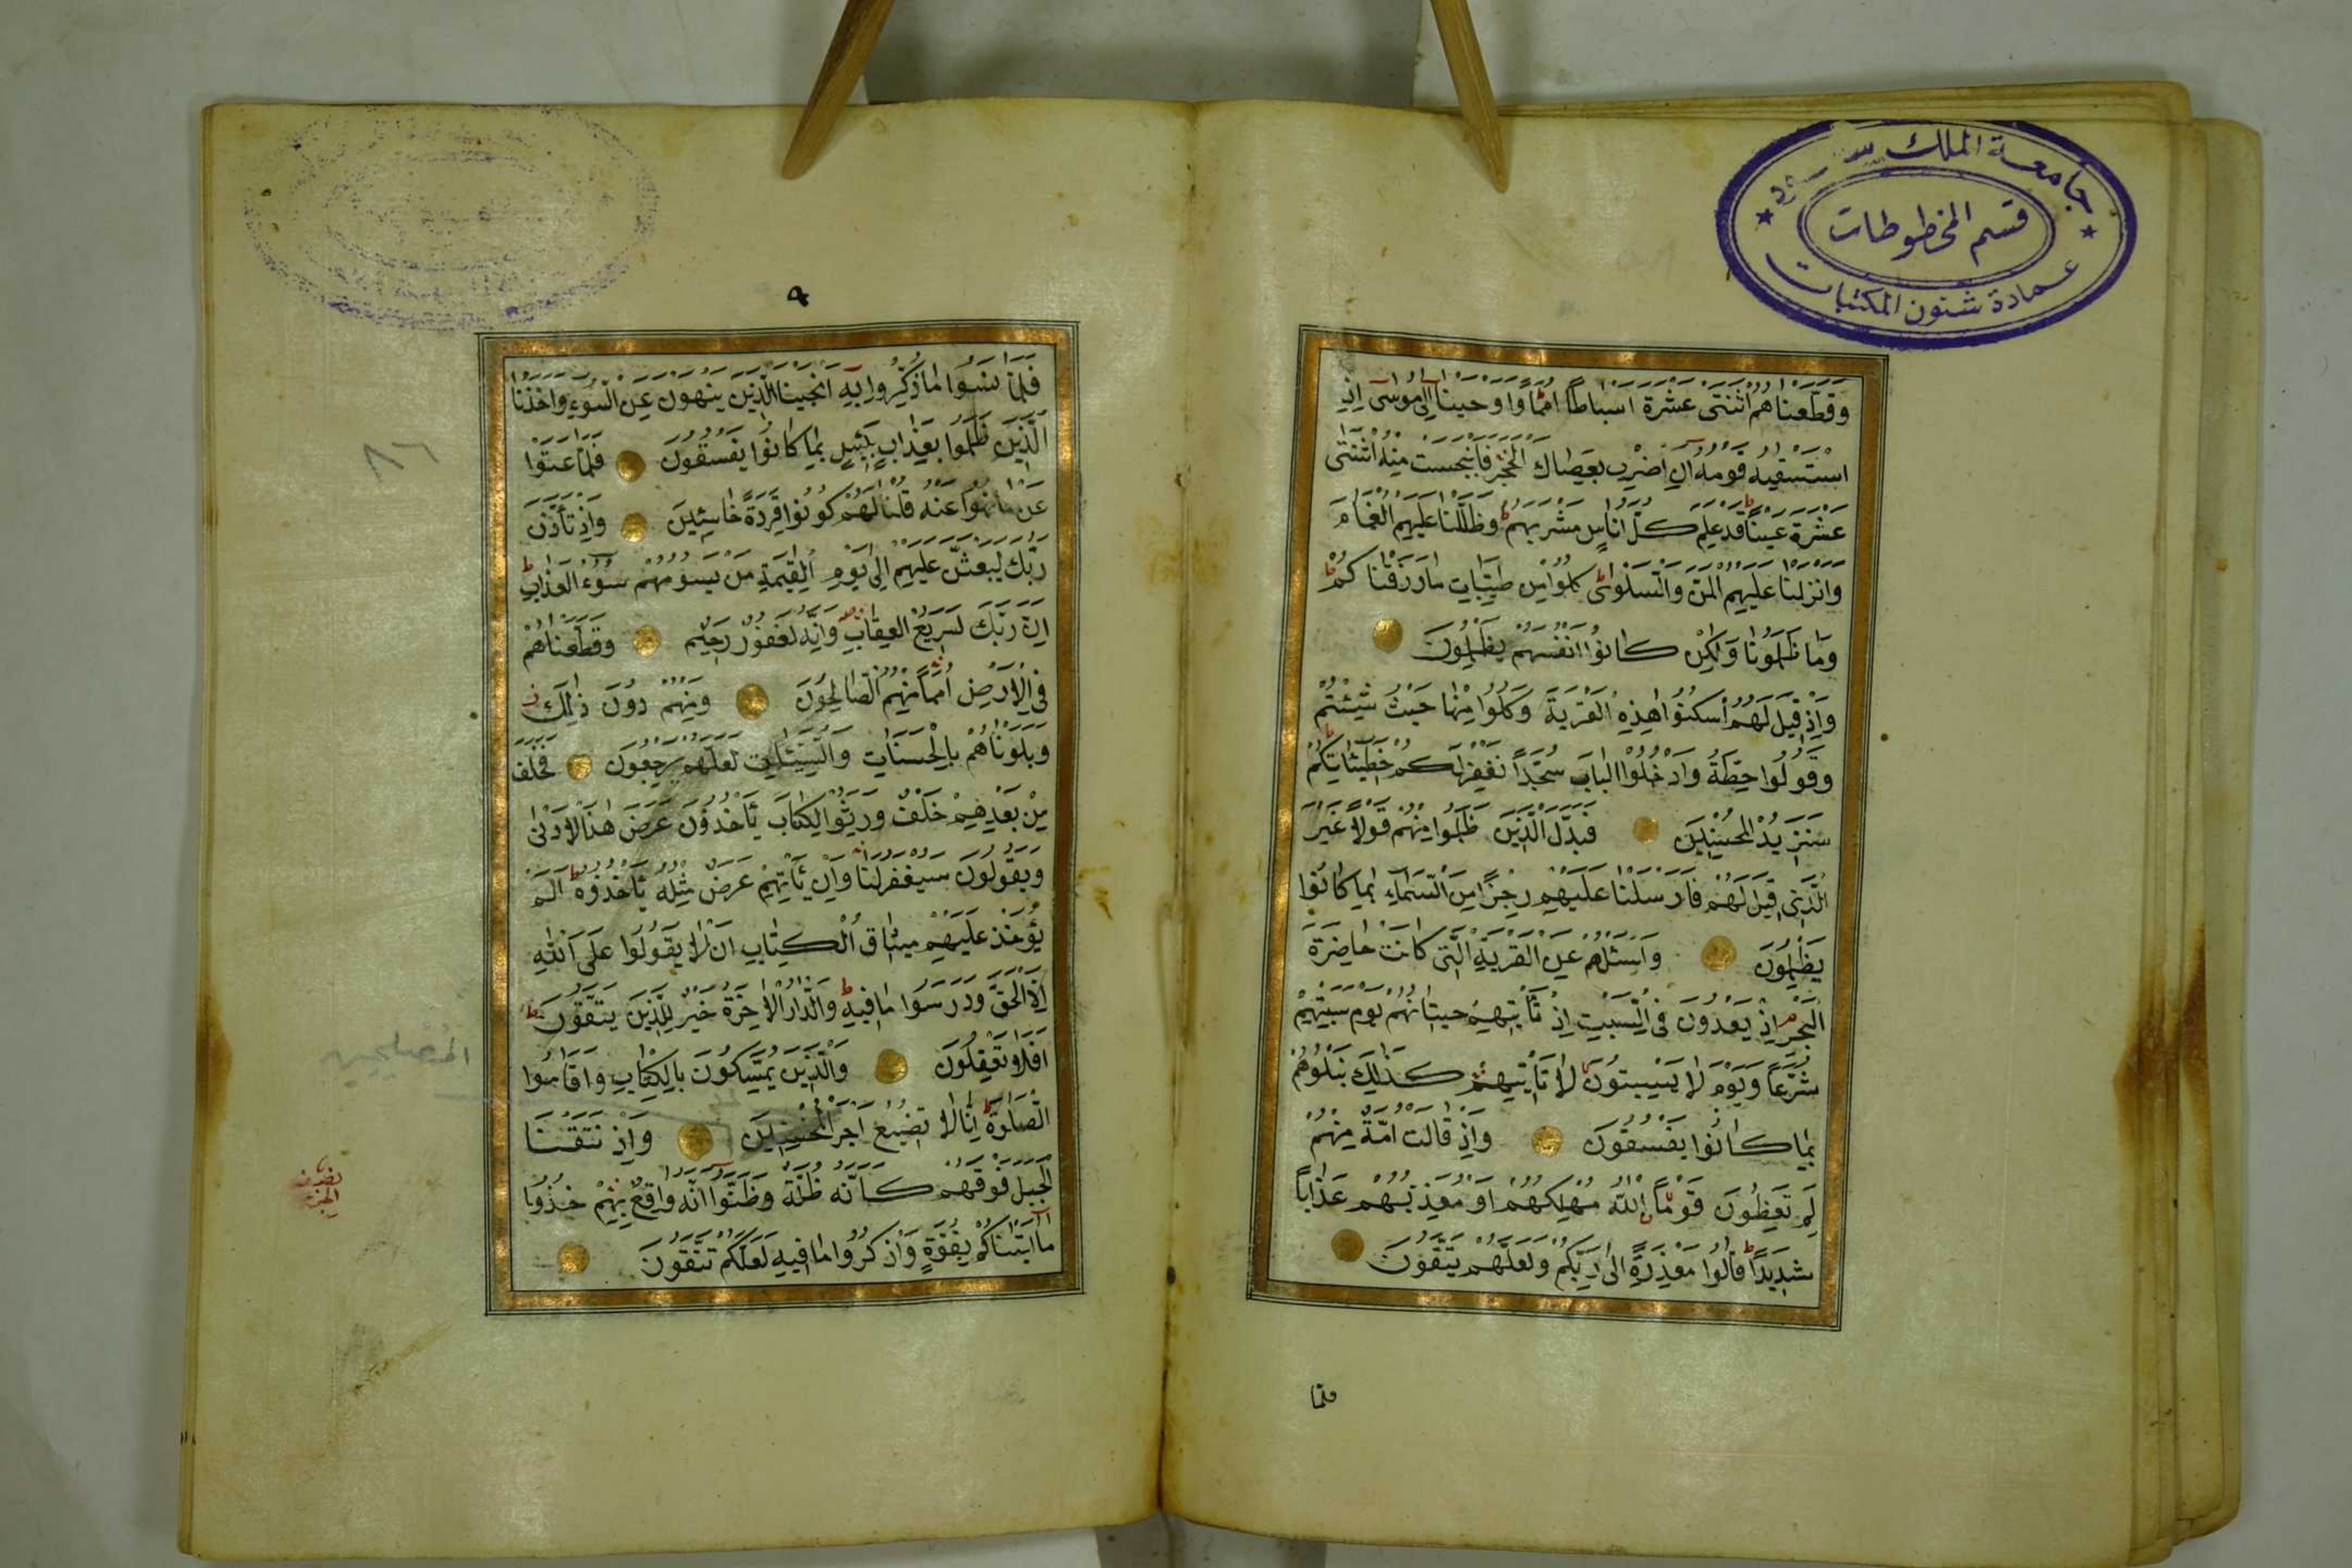 جامعة الملك سعود
قسم المخطوطات
عمادة شئون المكتبات
وقطعناهم اثنتى عشرة اسباطا امما واوحينا الى موسى اذ
استسقيه قومه ان اضرب بعصاك الحجر فانبجست منه اثنتى
عشرة عينا قد علم كل اناس مشربهم وظللنا عليهم الغمام
وانزلنا عليهم المن والسلوى كلوا من طيبات ما رزقناكم
وما ظلمونا ولكن كانوا انفسهم يظلمون
واذ قيل لهم اسكنوا هذه القرية وكلوا منها حيث شئتم
وقولوا حطة وادخلوا الباب سجدا نغفر لكم خطيئاتكم
سنزيد المحسنين فبدل الذين ظلموا منهم قولا غير
الذى قيل لهم فارسلنا عليهم رجزا من السماء بما كانوا
يظلمون واسئلهم عن القرية التى كانت حاضرة
البحر اذ يعدون فى السبت اذ تأتيهم حيتانهم يوم سبتهم
شرعا ويوم لا يسبتون لا تأتيهم كذلك نبلوهم
بما كانوا يفسقون واذ قالت امة منهم
لم تعظون قوما الله مهلكهم او معذبهم عذابا
شديدا قالوا معذرة الى ربكم ولعلهم يتقون
فلما
٤
فلما نسوا ما ذكروا به انجينا الذين ينهون عن السوء واخذنا
الذين ظلموا بعذاب بئيس بما كانوا يفسقون فلما عتوا
عن ما نهوا عنه قلنا لهم كونوا قردة خاسئين واذ تأذن
ربك ليبعثن عليهم الى يوم القيمة من يسومهم سوء العذاب
ان ربك لسريع العقاب وانه لغفور رحيم وقطعناهم
فى الارض امما منهم الصالحون ومنهم دون ذلك
وبلوناهم بالحسنات والسيئات لعلهم يرجعون فخلف
من بعدهم خلف ورثوا الكتاب يأخذون عرض هذا الادنى
ويقولون سيغفر لنا وان يأتهم عرض مثله يأخذوه الم
يؤخذ عليهم ميثاق الكتاب ان لا يقولوا على الله
الا الحق ودرسوا ما فيه والدار الاخرة خير للذين يتقون
افلا تعقلون والذين يمسكون بالكتاب واقاموا
الصلوة انا لا نضيع اجر المحسنين واذ نتقنا
الجبل فوقهم كانه ظلة وظنوا انه واقع بهم خذوا
ما اتيناكم بقوة واذكروا ما فيه لعلكم تتقون
٨٦
المصلحين